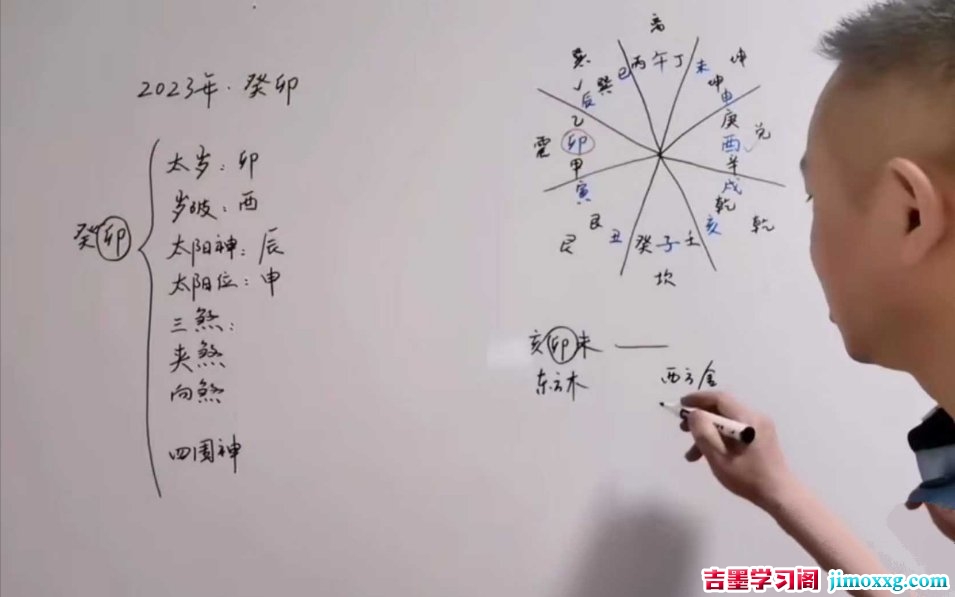 2023年·癸卯
癸卯
太岁：卯
岁破：酉
太阳神：辰
太阳位：申
三煞：
夹煞
向煞
四围神
离
巳 丙 午 丁 未
坤
坤
申
庚
酉
兑
辛
戌
乾
乾
亥
壬 子 癸
坎
丑
艮
艮
寅
甲
卯
震
乙
辰
巽
巽
亥卯未 —
东方木
西方金
吉墨学习阁 jimoxxg.com